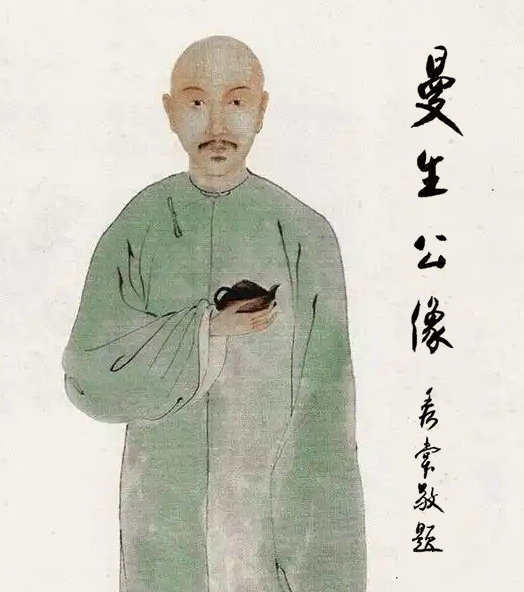 曼生公像
秀棠敬题